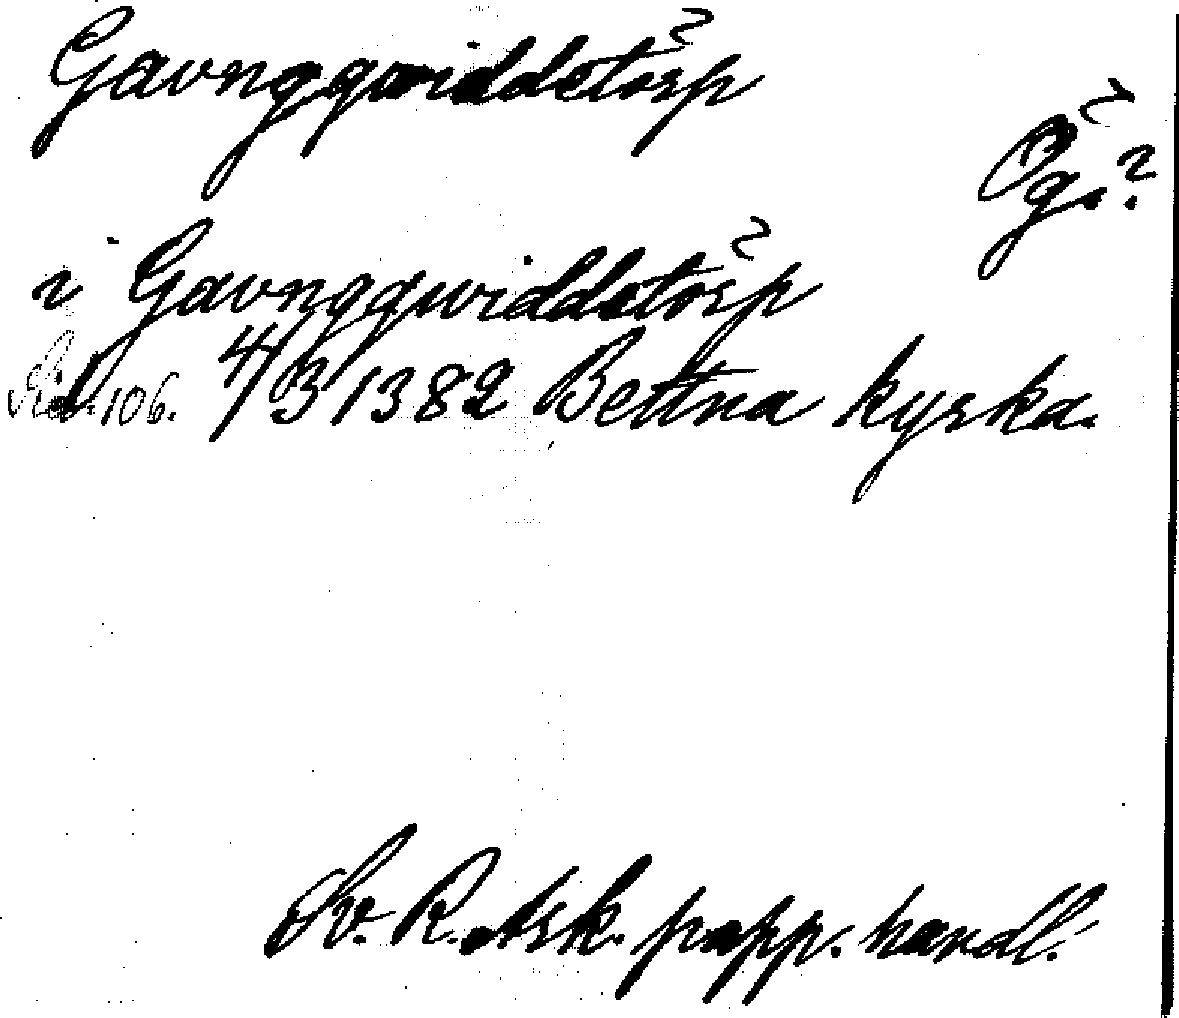 Gavngqwiddetörp
Ög.?
i Gavngqwiddetörp
Sid. 106. 4/3 1382 Bettna kyrka.
Sv. R. Ark. papp. handl.